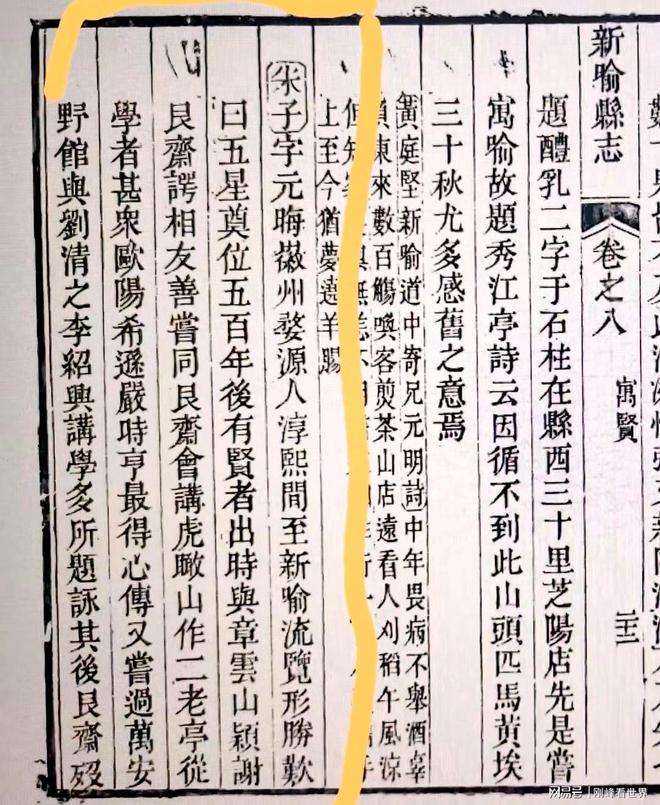 新喻縣志
卷之八
寓賢
題醴乳二字于石柱在縣西三十里芝陽店先是嘗
寓喻故題秀江亭詩云因循不到此山頭匹馬黃埃
三十秋尤多感舊之意焉
黃庭堅新喻道中寄兄元明詩中年畏病不舉酒辜
負東來數百觴喚客煎茶山店遠看人刈稻午風涼
但知
上至今猶夢遶羊腸
朱子字元晦徽州婺源人淳熙間至新喻流覽形勝歎
曰五星奠位五百年後有賢者出時與章雲山穎謝
艮齋諤相友善嘗同艮齋會講虎瞰山作二老亭從
學者甚衆歐陽希遜嚴時亨最得心傳又嘗過萬安
野館與劉清之李紹興講學多所題詠其後艮齋歿
網易號 | 刚峰看世界